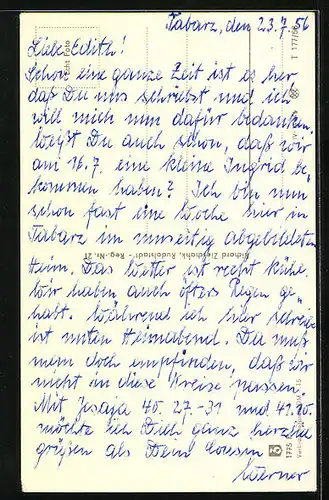 Tabarz, den 23.7.56
Liebe Edith!
Schon eine ganze Zeit ist es her
daß Du uns schriebst und ich
will mich nun dafür bedanken.
Weißt Du auch schon, daß wir
am 16.7. eine kleine Ingrid be-
kommen haben? Ich bin nun
schon fast eine Woche hier in
Tabarz im umseitig abgebildeten
Heim. Das Wetter ist recht kühl.
Wir haben auch öfters Regen ge-
habt. Während ich hier schreibe
ist unten Heimabend. Da muß
man doch empfinden, daß wir
nicht in diese Kreise passen.
Mit Jesaja 40. 27.-31 und 41.10.
möchte ich Dich ganz herzlich
grüßen als Dein Cousin
Werner
Echt Foto
Richard Zieschank, Rudolstadt - Reg.-Nr. 21
T 177/56